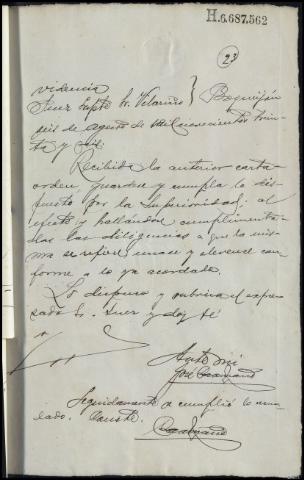 H.6.687.562
23
videncia
Juez Supte Sr. Vilariño } Boqueijón
seis de agosto de mil novecientos trein-
ta y seis.
Recibida la anterior carta
orden, guardese y cumpla lo dis-
puesto por la Superioridad; al
efecto y hallándose cumplimenta-
das las diligencias a que la mis-
ma se refiere unase y elevese con-
forme a lo ya acordado.
Lo dispuso y rubrica el expre-
sado Sr. Juez y doy fé
Ante mi
José
Seguidamente se cumplió lo man-
dado. Consta.